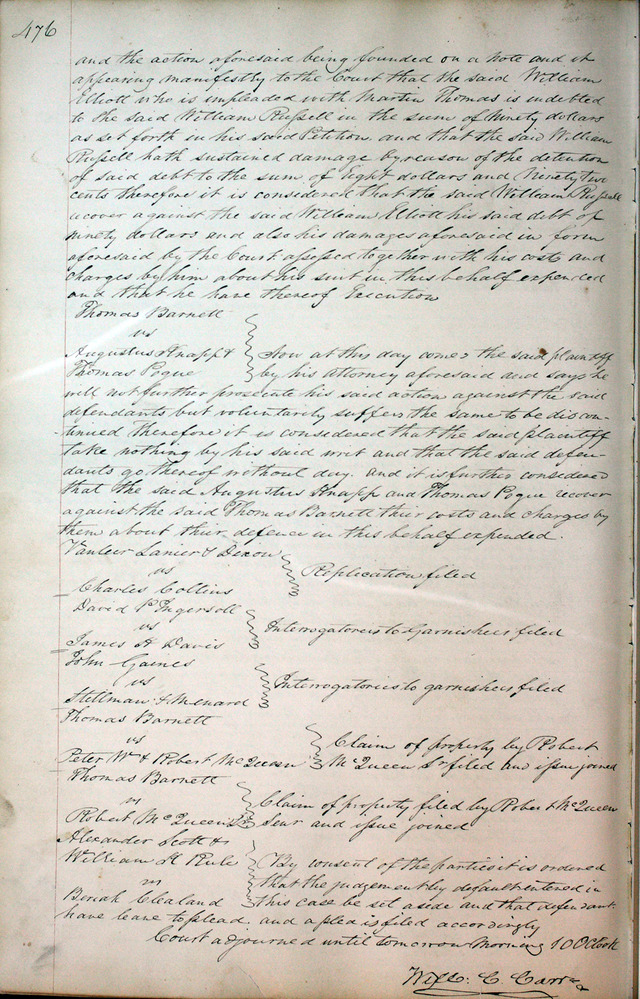 476
and the action aforesaid being founded on a note and it
appearing manifestly to the Court that the said William
Elliott who is impleaded with Martin Thomas is indebted
to the said William Russell in the sum of Ninety dollars
as set forth in his said Petition. and that the said William
Russell hath sustained damage by reason of the detention
of said debt to the sum of Eight dollars and Ninety two
cents therefore it is considered that the said William Russell
recover against the said William Elliott his said debt of
ninety dollars and also his damages aforesaid in form
aforesaid by the Court assessed together with his costs and
charges by him about his suit in this behalf expended
and that he have thereof Execution
Thomas Barnett
vs
Augustus Knapp &
Thomas Pogue
Now at this day comes the said plaintiff
by his Attorney aforesaid and says he
will not further prosecute his said action against the said
defendants but voluntarily suffers the same to be discon-
tinued Therefore it is considered that the said plaintiff
take nothing by his said writ and that the said defen-
dants go thereof without day. and it is further considered
that the said Augustus Knapp and Thomas Pogue recover
against the said Thomas Barnett thier costs and charges by
them about thier defence in this behalf expended.
Vanleer Lanier & Dixon
vs
Charles Collins
Replication filed
David P Ingersoll
vs
James H Davis
Interrogatories to Garnishees filed
John Gaines
vs
Stillman & Menard
Interrogatories to garnishees, filed
Thomas Barnett
vs
Peter Wm & Robert McQueen
Claim of property by Robert
McQueen Sr filed and issue joined
Thomas Barnett
vs
Robert McQueen Sr
Claim of property filed by Robert McQueen
Senr and issue joined
Alexander Scott &
William H Rule
vs
Beriah Cleland
By consent of the parties it is ordered
that the judgement by default entered in
this case be set aside and that defendant
have leave to plead. and a plea is filed accordingly
Court adjourned until tomorrow Morning 10 OClock
Will: C. Carr